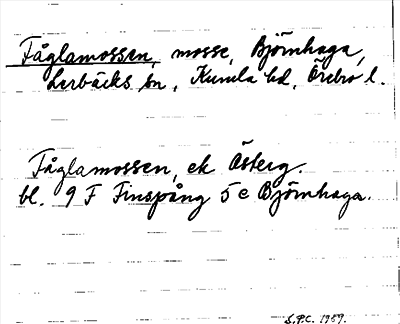 Fåglamossen, mosse, Björnhaga,
Lerbäcks sn, Kumla hd, Örebro l.
Fåglamossen, ek Österg.
bl. 9 F Finspång 5 e Björnhaga.
S.P.C. 1959.